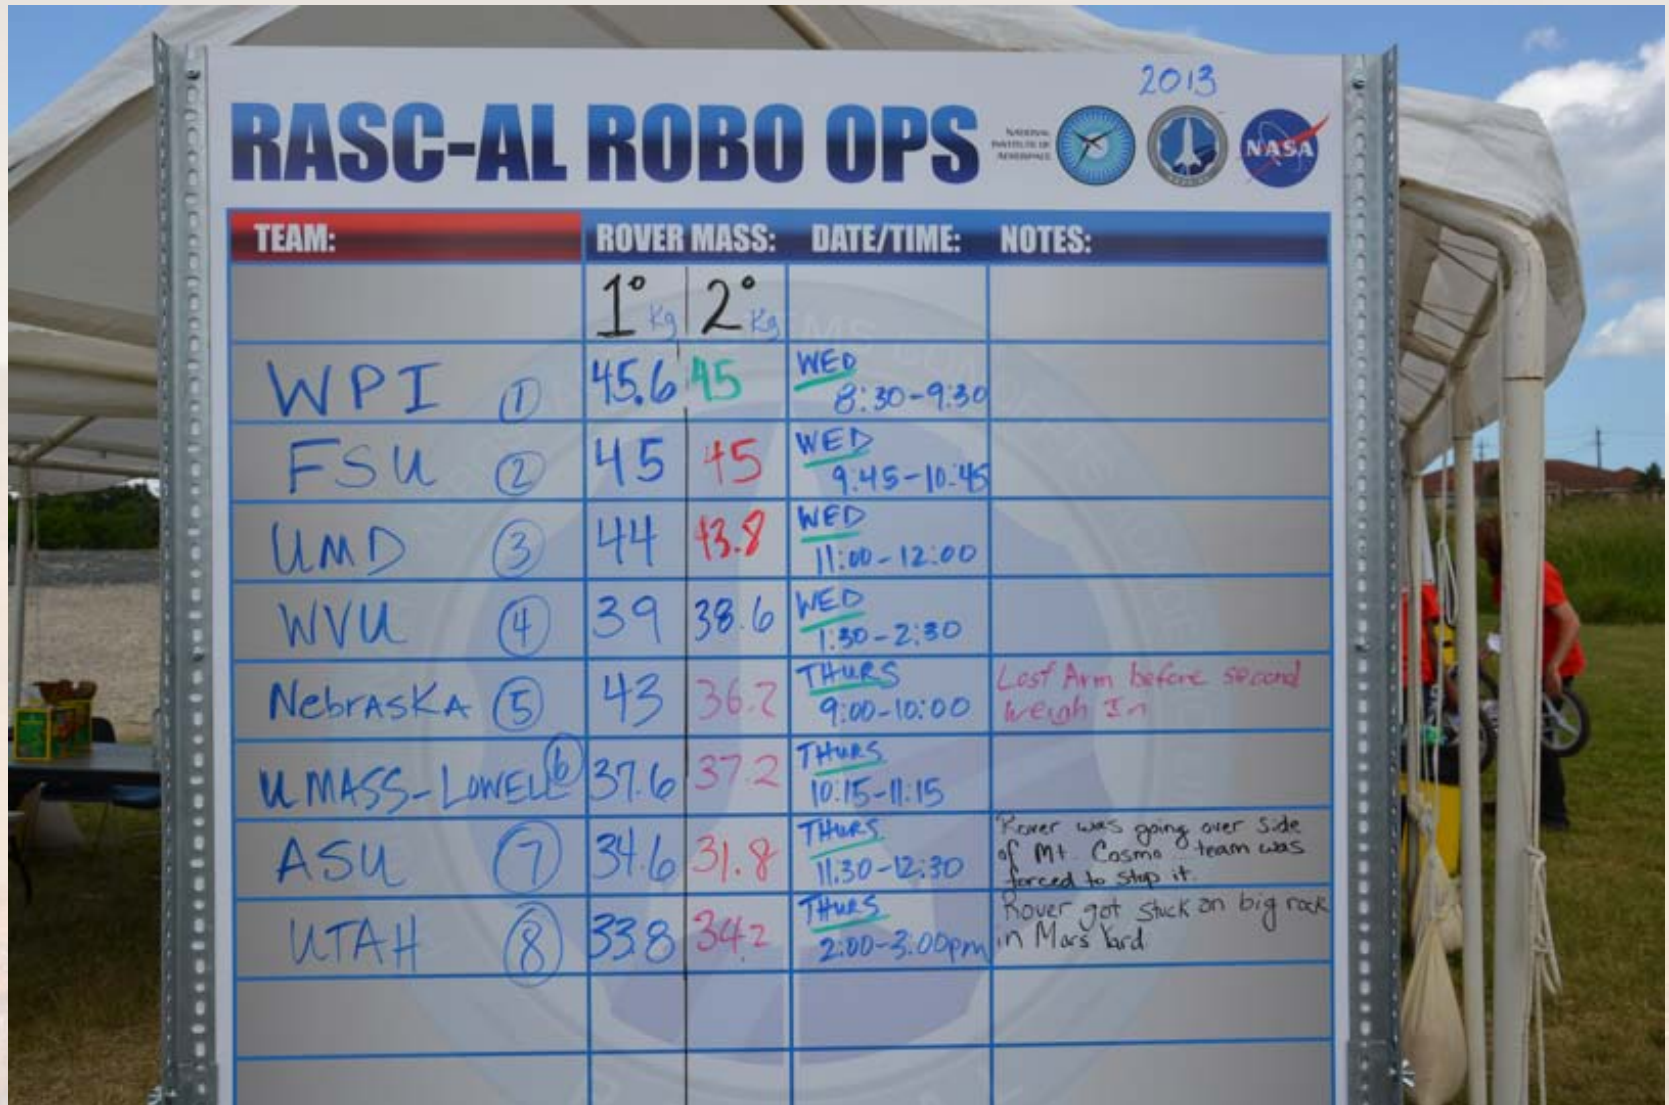 2013
RASC-AL ROBO OPS
NATIONAL
INSTITUTE OF
AEROSPACE
NASA
TEAM: ROVER MASS: DATE/TIME: NOTES:
1° Kg 2° Kg
WPI 1 45.6 45 WED 8:30-9:30
FSU 2 45 45 WED 9:45-10:45
UMD 3 44 43.8 WED 11:00-12:00
WVU 4 39 38.6 WED 1:30-2:30
NebrasKA 5 43 36.2 THURS 9:00-10:00 Lost Arm before second
Weigh In
UMASS-LOWELL 6 37.6 37.2 THURS 10:15-11:15
ASU 7 34.6 31.8 THURS 11:30-12:30 Rover was going over side
of Mt. Cosmo team was
forced to stop it.
UTAH 8 33.8 34.2 THURS 2:00-3:00pm Rover got stuck on big rock
in Mars Yard